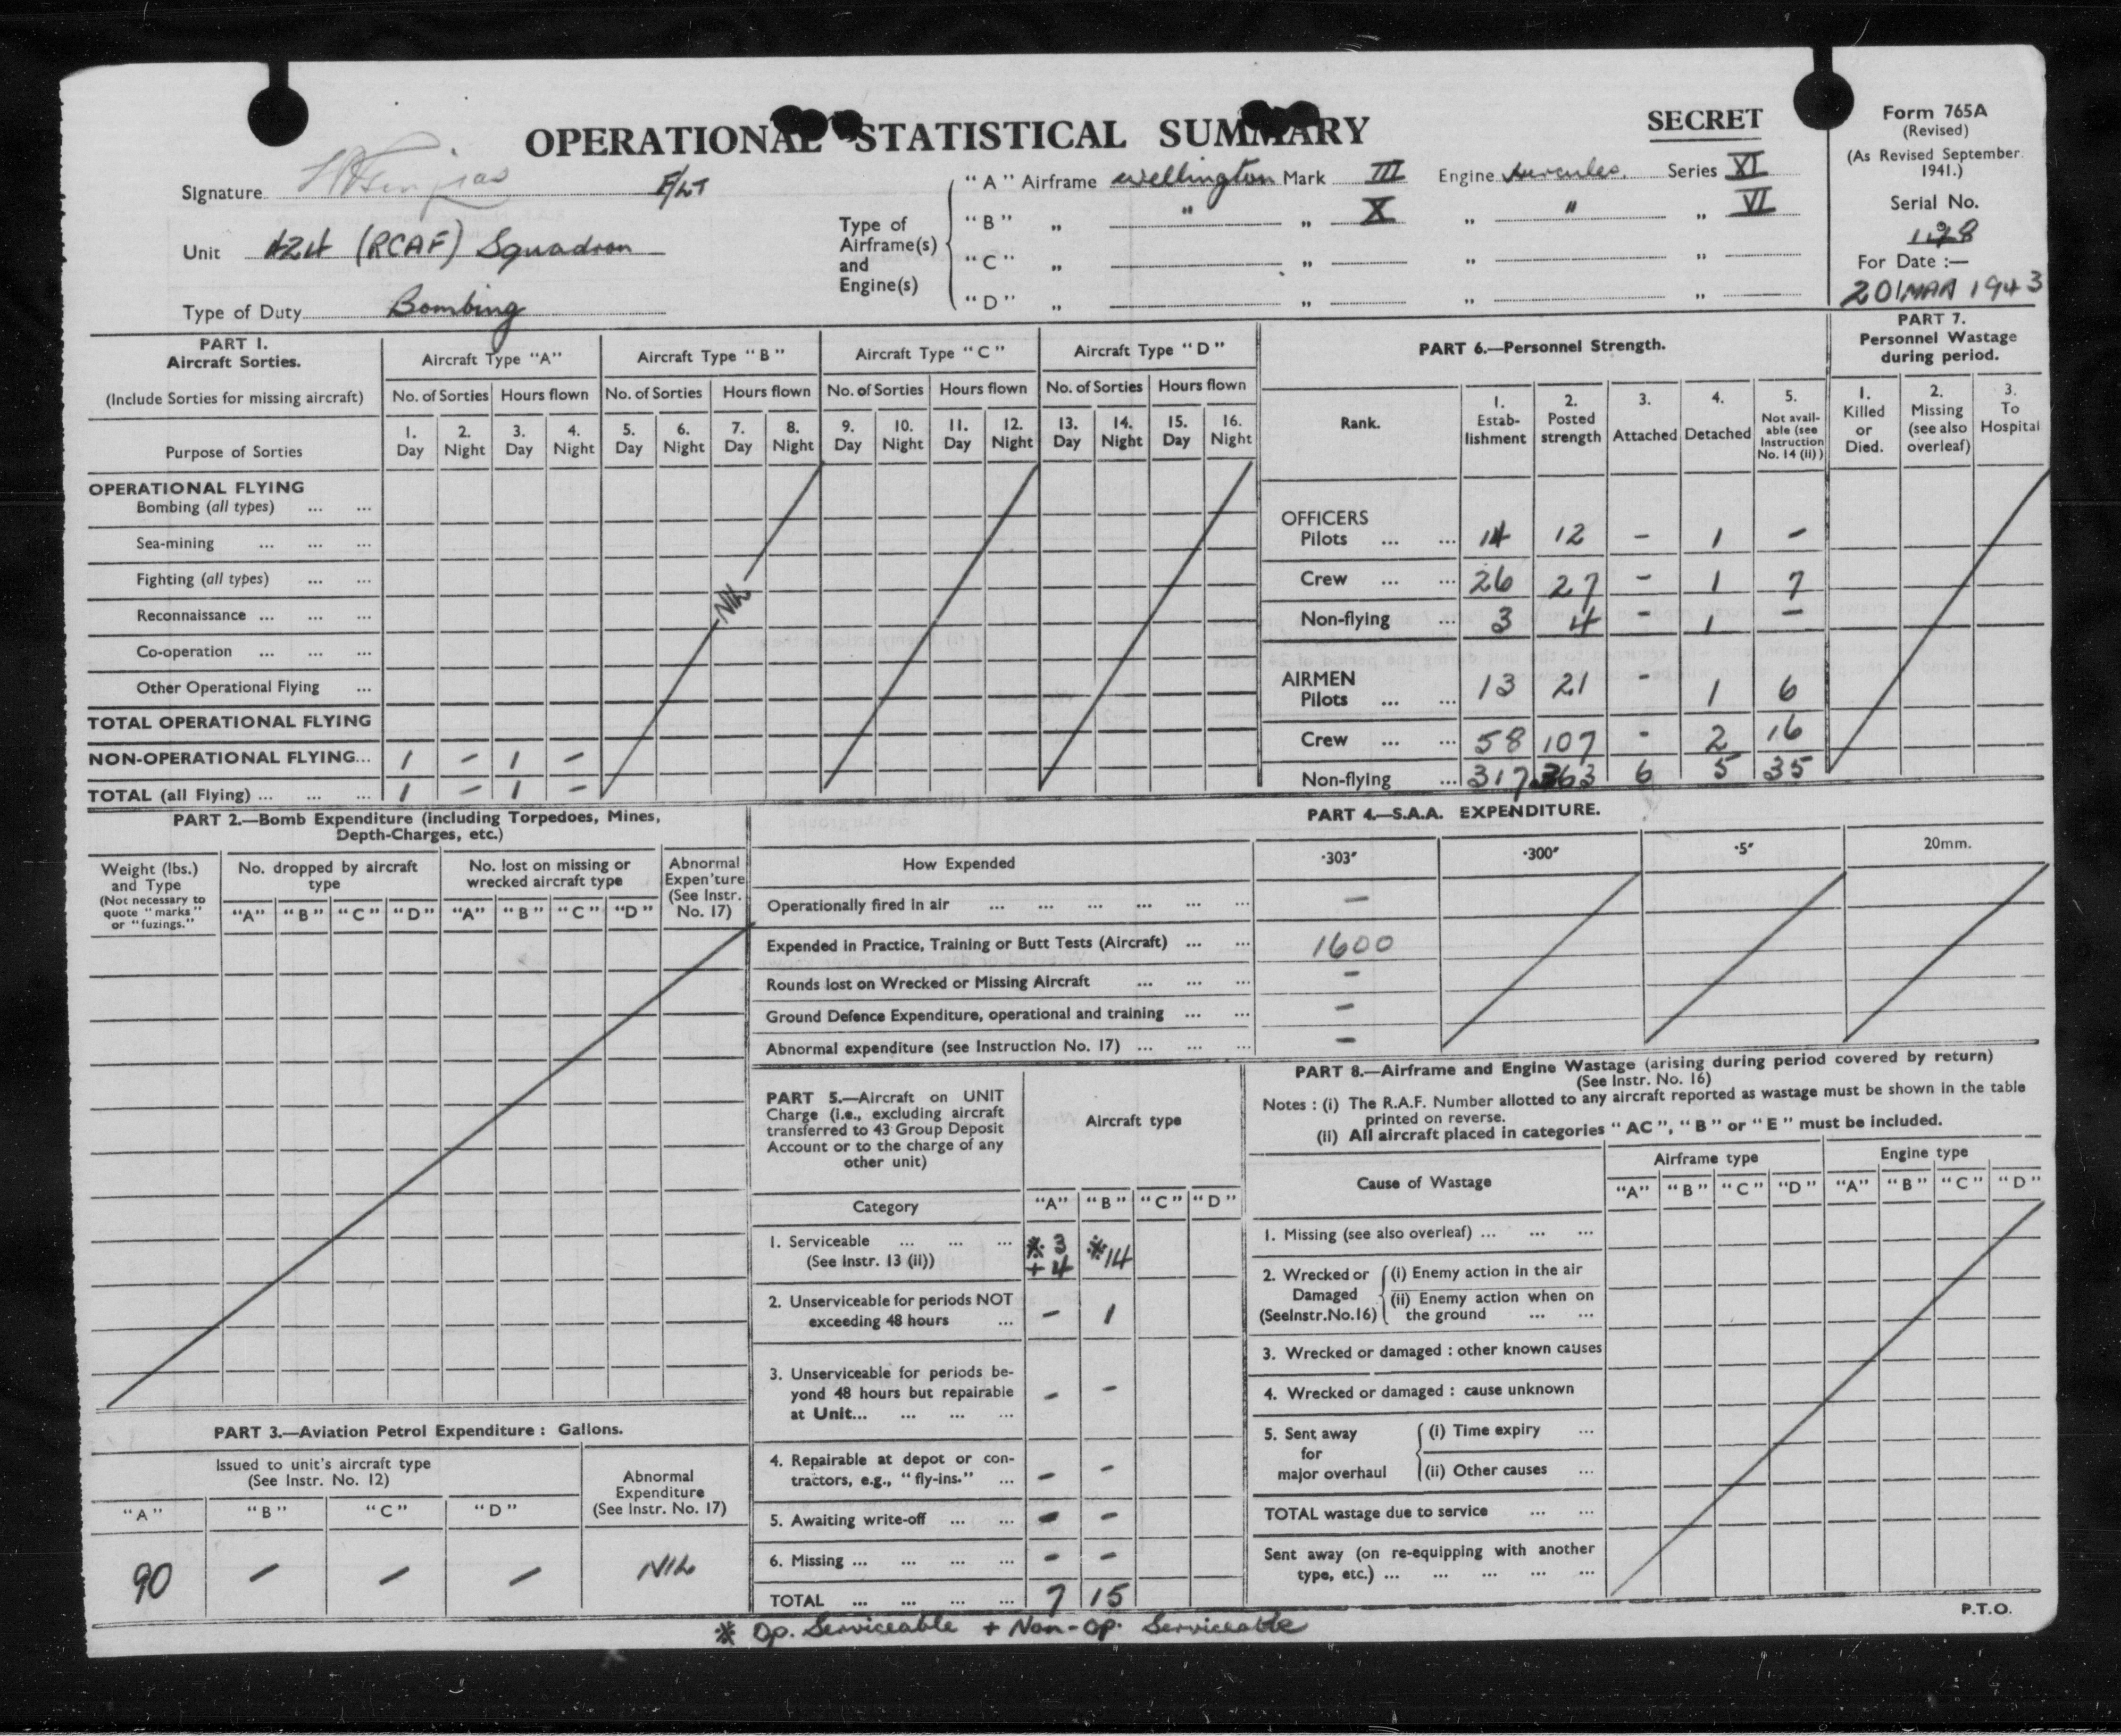 OPERATIONAL STATISTICAL SUMMARY
SECRET
Form 765A
(Revised)
(As Revised September 1941.)
Serial No.
For Date :—
20 MAR 1943
Signature F/LT
Unit 424 (RCAF) Squadron
Type of Duty Bombing
Type of Airframe(s) and Engine(s)
"A" Airframe Wellington Mark III Engine Hercules. Series XI
"B" „ " „ X „ " „ VI
"C" „ „ „ „
"D" „ „ „ „
PART 1.
Aircraft Sorties.
(Include Sorties for missing aircraft)
Purpose of Sorties
Aircraft Type "A" Aircraft Type "B" Aircraft Type "C" Aircraft Type "D"
No. of Sorties Hours flown No. of Sorties Hours flown No. of Sorties Hours flown No. of Sorties Hours flown
1. Day 2. Night 3. Day 4. Night 5. Day 6. Night 7. Day 8. Night 9. Day 10. Night 11. Day 12. Night 13. Day 14. Night 15. Day 16. Night
OPERATIONAL FLYING
Bombing (all types) ... ...
Sea-mining ... ... ...
Fighting (all types) ... ...
NIL
Reconnaissance ... ... ...
Co-operation ... ... ...
Other Operational Flying ...
TOTAL OPERATIONAL FLYING
NON-OPERATIONAL FLYING... 1 - 1 -
TOTAL (all Flying) ... ... ... 1 - 1 -
PART 6.—Personnel Strength.
Rank. 1. Estab-lishment 2. Posted strength 3. Attached 4. Detached 5. Not avail-able (see Instruction No. 14 (ii) )
OFFICERS
Pilots ... ... 14 12 - 1 -
Crew ... ... 26 27 - 1 7
Non-flying ... 3 4 - 1 -
AIRMEN
Pilots ... ... 13 21 - 1 6
Crew ... ... 58 107 - 2 16
Non-flying ... 317 363 6 5 35
PART 7.
Personnel Wastage during period.
1. Killed or Died. 2. Missing (see also overleaf) 3. To Hospital
PART 2.—Bomb Expenditure (including Torpedoes, Mines, Depth-Charges, etc.)
Weight (lbs.) and Type (Not necessary to quote "marks" or "fuzings."
No. dropped by aircraft type
No. lost on missing or wrecked aircraft type
Abnormal Expen'ture (See Instr. No. 17)
"A" "B" "C" "D" "A" "B" "C" "D"
PART 3.—Aviation Petrol Expenditure : Gallons.
Issued to unit's aircraft type
(See Instr. No. 12)
Abnormal Expenditure (See Instr. No. 17)
"A" "B" "C" "D"
90 - - - NIL
PART 4.—S.A.A. EXPENDITURE.
How Expended ·303" ·300" ·5" 20mm.
Operationally fired in air ... ... ... ... ... ... -
Expended in Practice, Training or Butt Tests (Aircraft) ... ... 1600
Rounds lost on Wrecked or Missing Aircraft ... ... ... -
Ground Defence Expenditure, operational and training ... ... -
Abnormal expenditure (see Instruction No. 17) ... ... ... -
PART 5.—Aircraft on UNIT
Charge (i.e., excluding aircraft
transferred to 43 Group Deposit
Account or to the charge of any
other unit)
Aircraft type
Category "A" "B" "C" "D"
1. Serviceable ... ... ... ※ 3 ※ 14
(See Instr. 13 (ii)) + 4
2. Unserviceable for periods NOT
exceeding 48 hours ... - 1
3. Unserviceable for periods be-
yond 48 hours but repairable
at Unit... ... ... ... - -
4. Repairable at depot or con-
tractors, e.g., "fly-ins." ... - -
5. Awaiting write-off ... ... - -
6. Missing ... ... ... ... - -
TOTAL ... ... ... ... 7 15
PART 8.—Airframe and Engine Wastage (arising during period covered by return)
(See Instr. No. 16)
Notes : (i) The R.A.F. Number allotted to any aircraft reported as wastage must be shown in the table
printed on reverse.
(ii) All aircraft placed in categories "AC", "B" or "E" must be included.
Cause of Wastage Airframe type Engine type
"A" "B" "C" "D" "A" "B" "C" "D"
1. Missing (see also overleaf) ... ... ...
2. Wrecked or Damaged (SeeInstr.No.16)
(i) Enemy action in the air
(ii) Enemy action when on the ground ... ...
3. Wrecked or damaged : other known causes
4. Wrecked or damaged : cause unknown
5. Sent away for major overhaul
(i) Time expiry ...
(ii) Other causes ...
TOTAL wastage due to service ... ...
Sent away (on re-equipping with another
type, etc.) ... ... ... ... ...
P.T.O.
※ Op. Serviceable + Non-Op. Serviceable